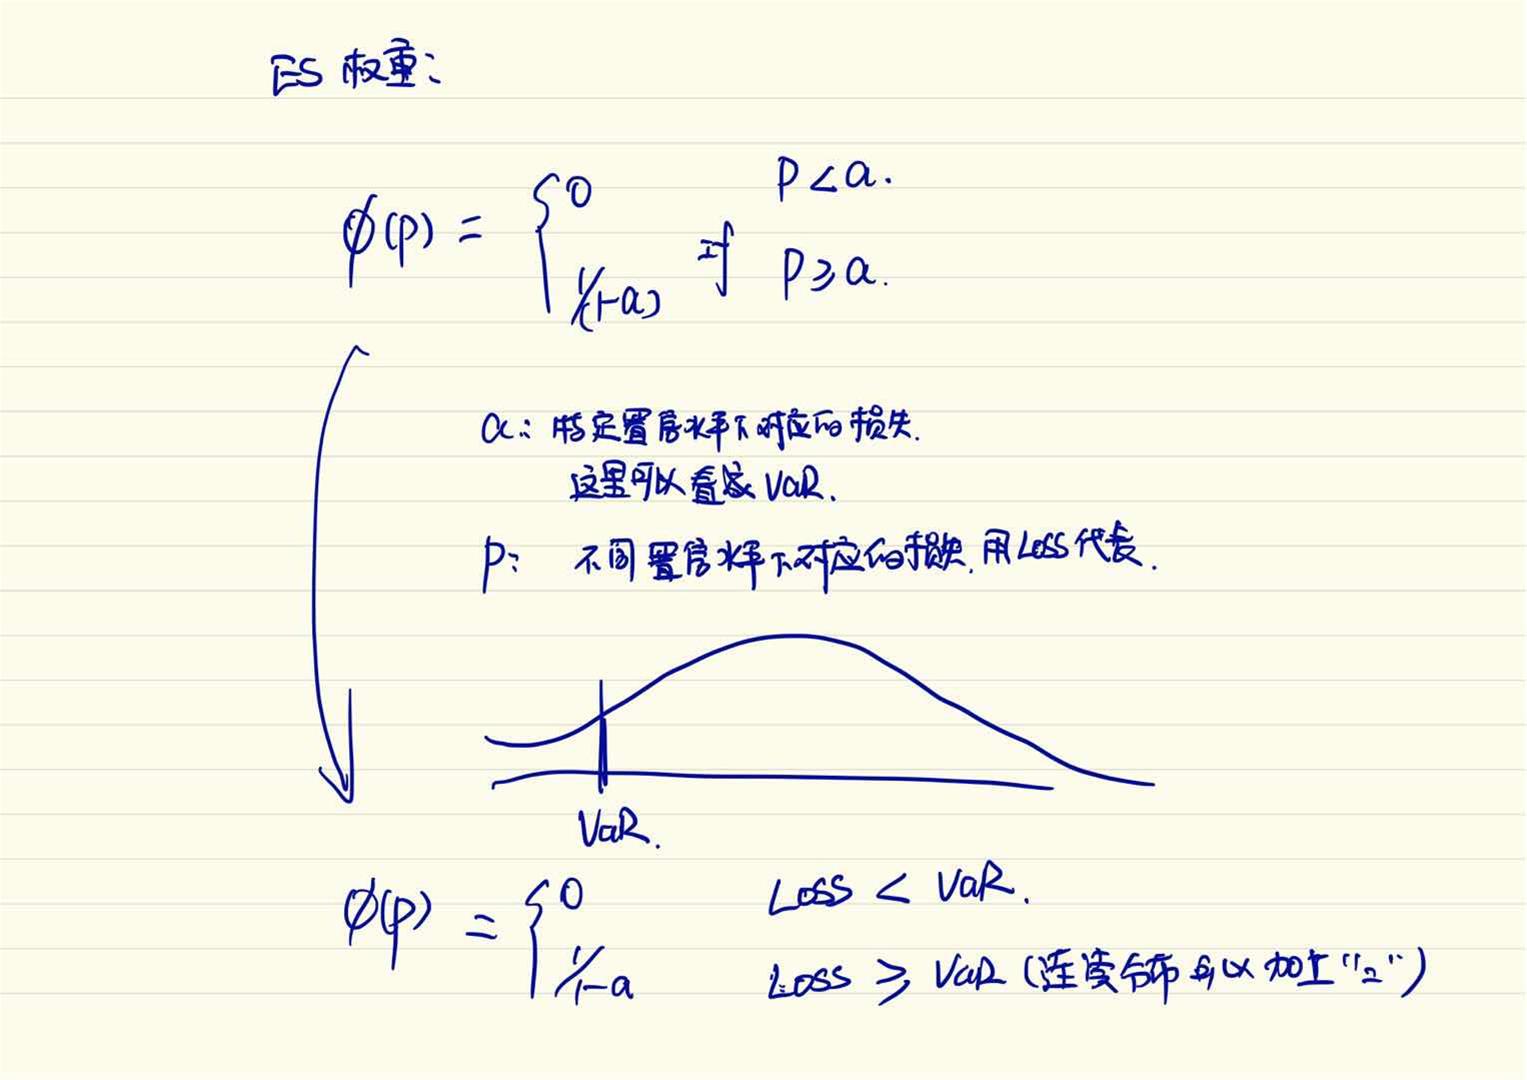 ES 权重:
φ(p) = { 0 if p < a.
1/(1-a) p ≥ a.
a: 特定置信水平下对应的损失.
这里可以看成 VaR.
p: 不同置信水平下对应的损失, 用 Loss 代表.
VaR.
φ(p) = { 0 Loss < VaR.
1/1-a Loss ≥ VaR (连续分布所以加上 "=")